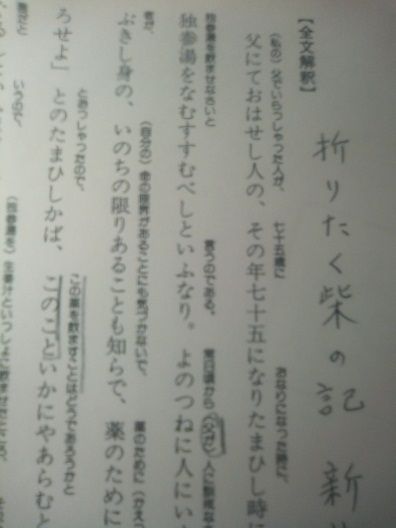 折りたく柴の記 新
【全文解釈】
(私の)父でいらっしゃった人が、 七十五歳に おなりになった時に、
父にておはせし人の、その年七十五になりたまひし時
独参湯を飲ませなさいと 言うのである。 常日頃から(父が)人に訓戒な
独参湯をなむすすむべしといふなり。よのつねに人にい
者が、 (自分の)命の限界があることにも気づかないで、 薬のために(かえっ
ぶきし身の、いのちの限りあることも知らで、薬のために
とおっしゃったので、 この薬を飲ますことはどうであろうかと
ろせよ」とのたまひしかば、このこといかにやあらむと
いうので、 (独参湯を)生姜汁といっしょに飲ませたところ、